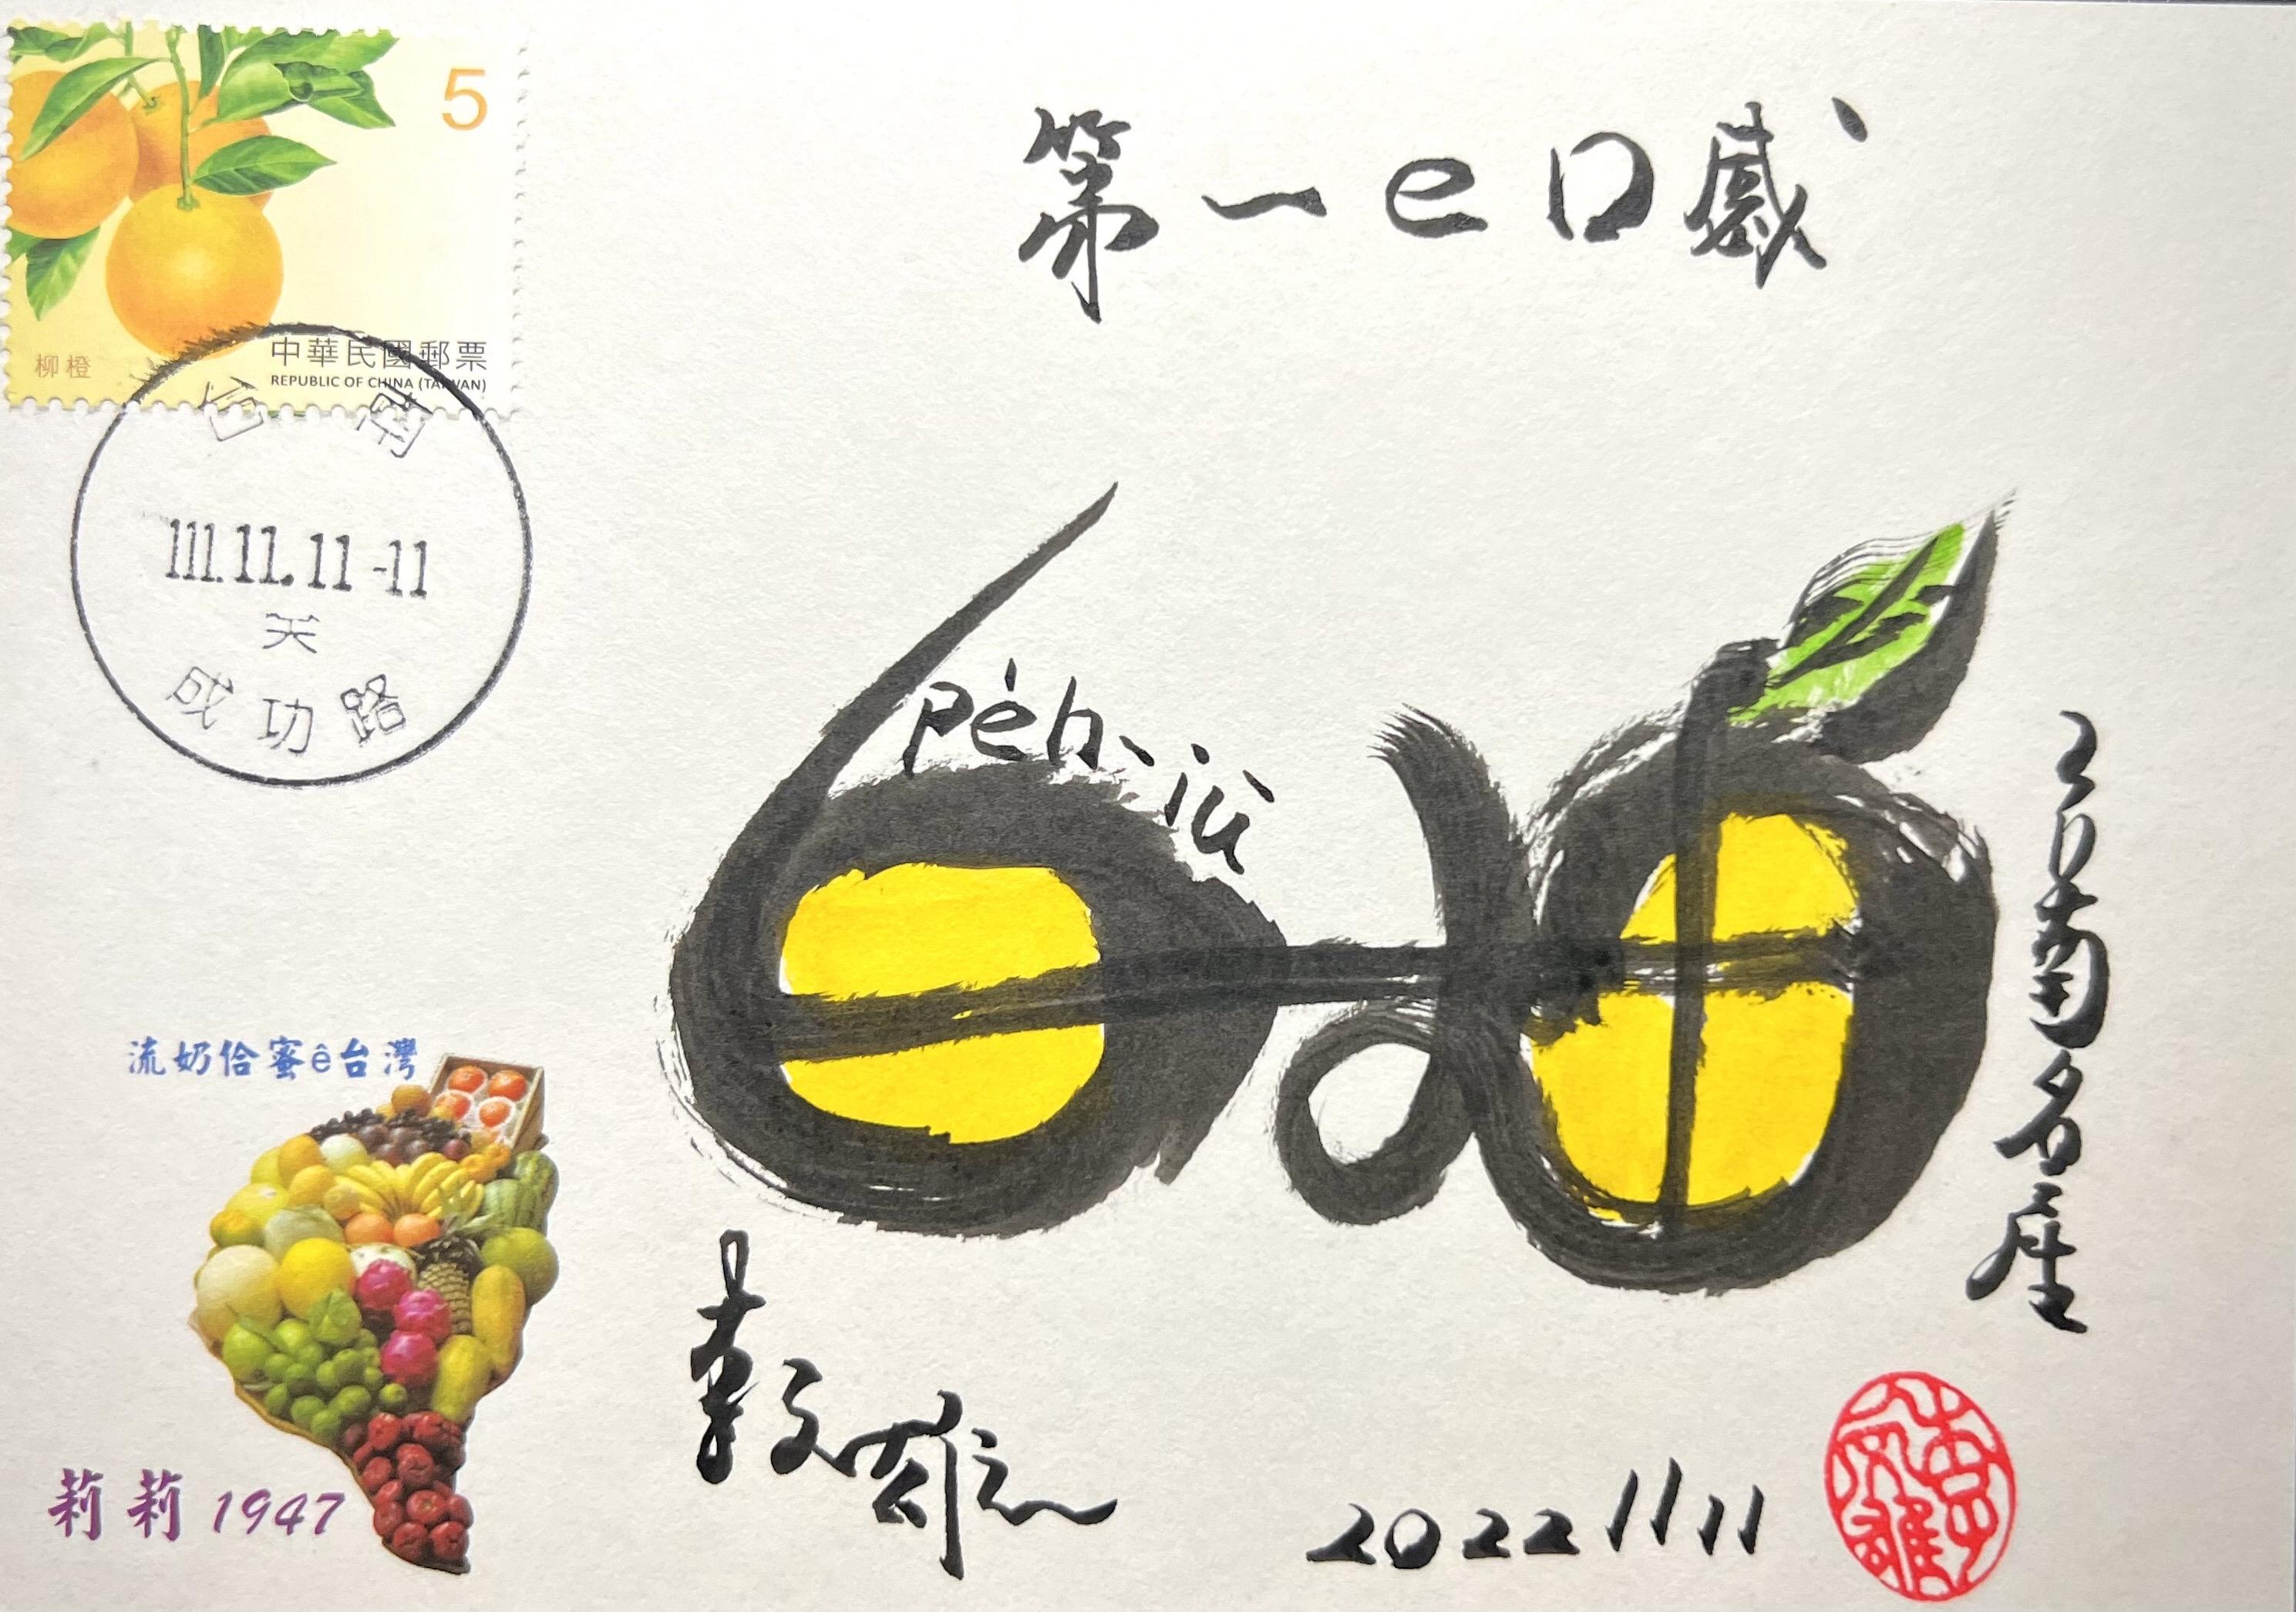 5
柳橙
中華民國郵票
REPUBLIC OF CHINA (TAIWAN)
台南
111.11.11-11
成功路
第一e口感
pe̍h-iū
台南名產
流奶佮蜜ê台灣
莉莉1947
2022 11 11